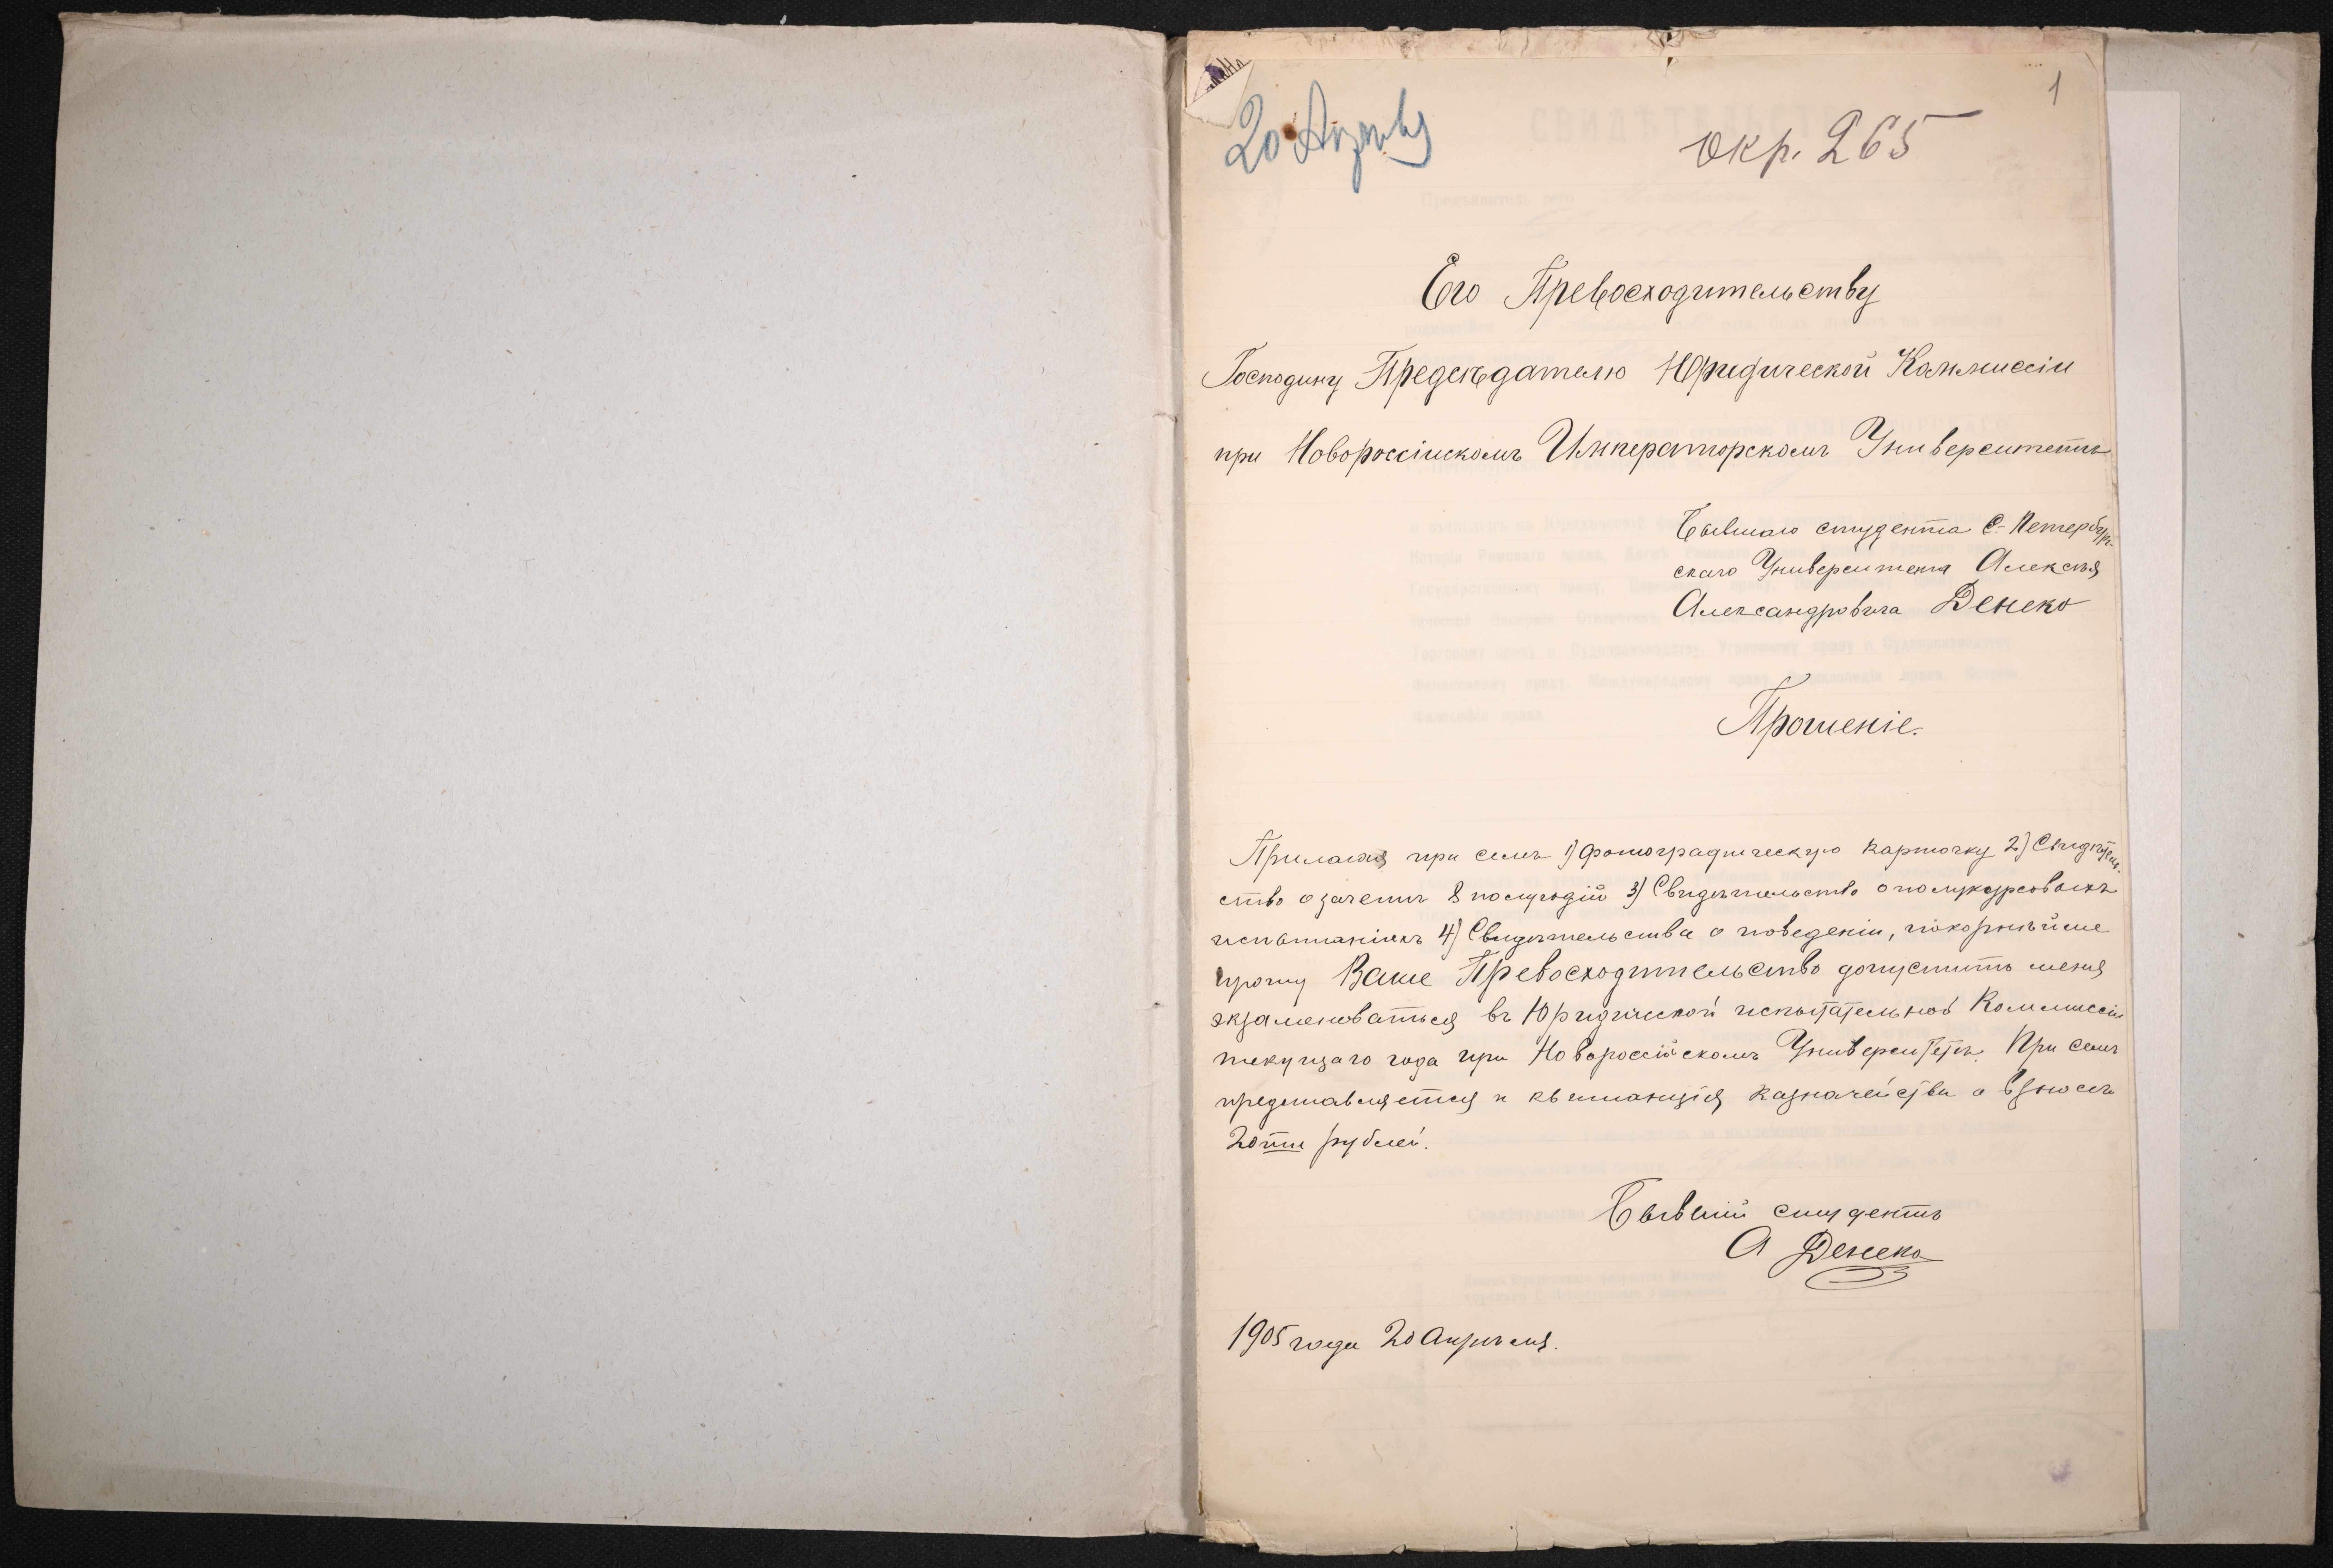 1
окр. 265
Его Превосходительству
Господину Председателю Юридической Коммиссіи
при Новороссійскомъ Императорскомъ Университетѣ
Бывшаго студента С-Петербург-
скаго Университета Алексѣя
Александровича Денеко
Прошеніе.
Прилагая при семъ 1) Фотографическую карточку 2) Свидѣтель-
ство о зачетѣ 8 полугодій 3) Свидѣтельство о полукурсовыхъ
испытаніяхъ 4) Свидѣтельство о поведеніи, покорнѣйше
прошу Ваше Превосходительство допустить меня
экзаменоваться въ Юридической испытательной Коммиссіи
текущаго года при Новороссійскомъ Университетѣ. При семъ
представляется и квитанція казначейства о взносѣ
20ти рублей.
Бывшій студентъ
А Денеко
1905 года 20 Апрѣля.